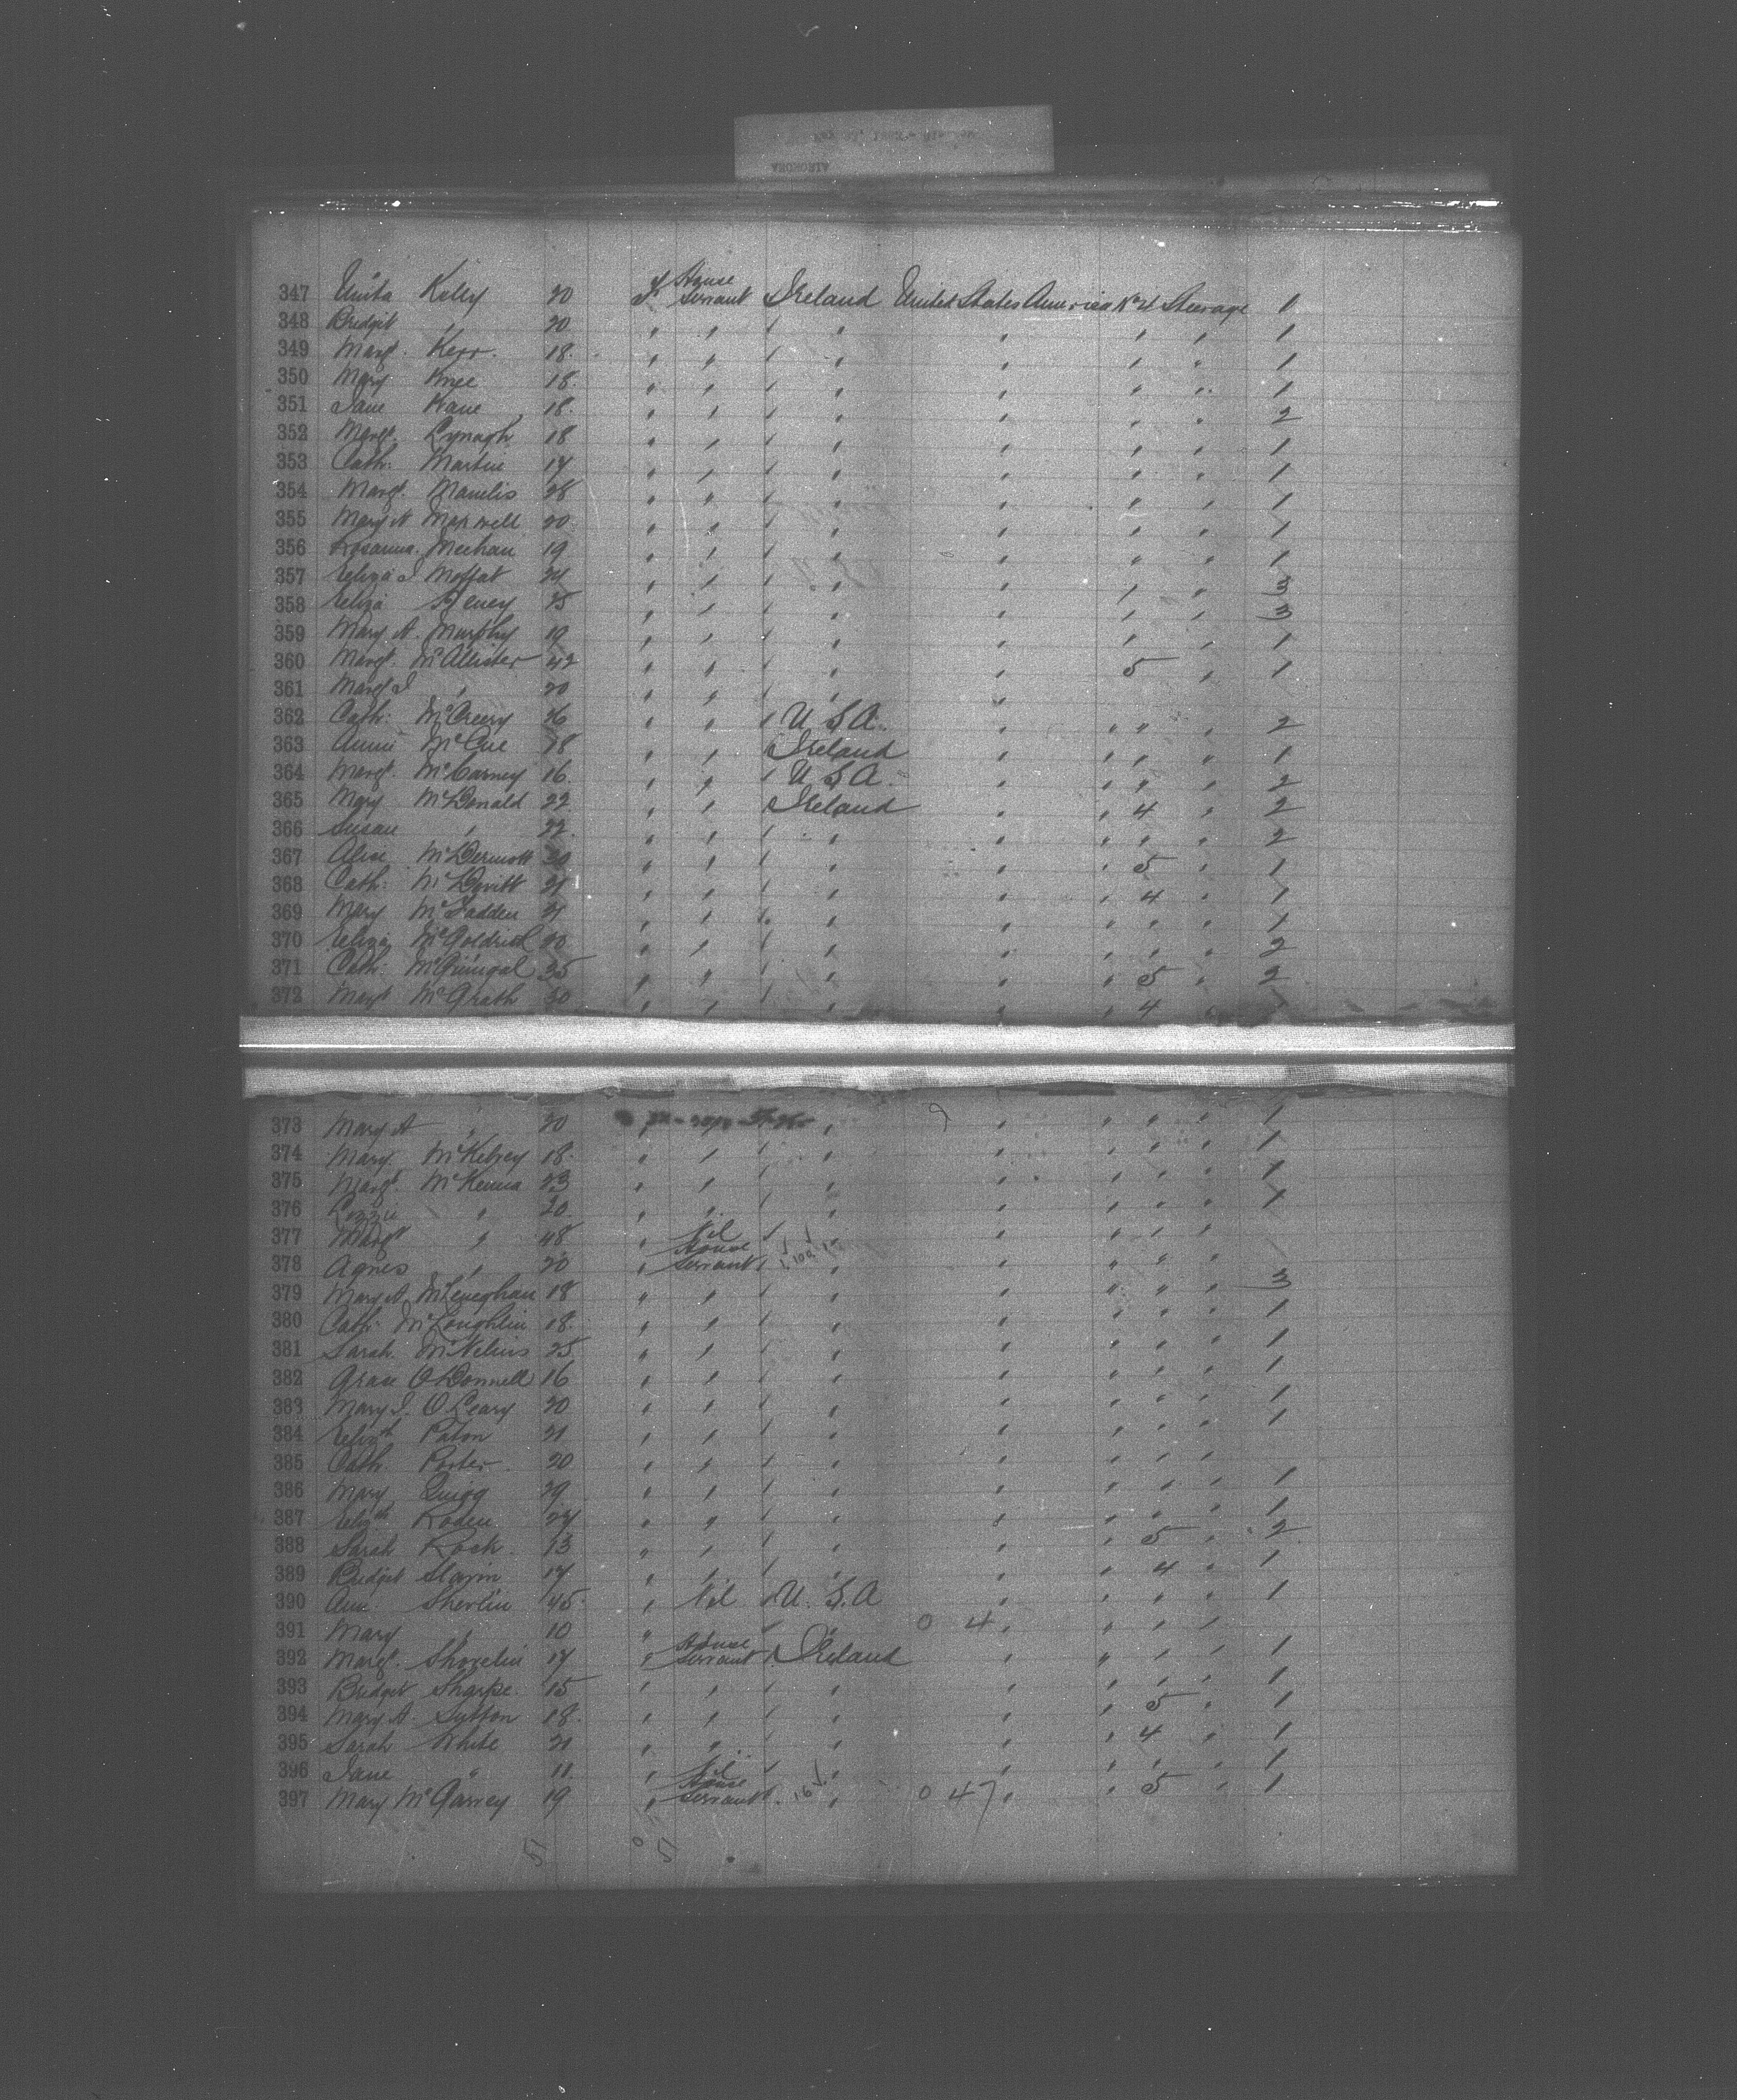 347 Unita Kelly 20 F House Servant Ireland United States America No 4 Steerage 1
348 Bridget " 20 " " " " " " 1
349 Margt. Kerr. 18. " " " " " " 1
350 Mary Knee 18. " " " " " " 1
351 Jane Kane 18. " " " " " " 2
352 Margt. Lynagh 18 " " " " " " 1
353 Cath: Martin 17 " " " " " " 1
354 Margt. Manelis 28 " " " " " " 1
355 Mary A Maxwell 20 " " " " " " 1
356 Rosanna. Meehan 19 " " " " " " 1
357 Eliza J Moffat 24 " " " " " " 3
358 Eliza 25 " " " " " " 3
359 Mary A. Murphy 19 " " " " " " 1
360 Margt. McAllister 42 " " " " 5 " 1
361 Margt J " 20 " " " "
362 Cath: McCreery 26 " " U.S.A. " " " 2
363 Annie McCue 18 " " Ireland " " " 1
364 Margt. McCarney 16. " " U.S.A. " " " 2
365 Mary McDonald 22 " " Ireland " 4 " 2
366 Susan " 22. " " " " " " 2
367 Alice McDermott 20 " " " " 5 " 1
368 Cath: McDevitt 21 " " " " 4 " 1
369 Mary McFadden 21 " " " " " " 1
370 Eliza McGoldrick 20 " " " " " " 2
371 Cath: McGuinigal 35 " " " " 5 " 2
372 Margt McGrath 50 " " " " 4 "
373 Mary A " 20 " " " " " " 1
374 Mary. McKelvey 18. " " " " " " 1
375 Margt. McKenna 23 " " " " " " 1
376 Lizzie " 20. " " " " " " 1
377 Margt " 48 " Nil " " " "
378 Agnes " 20 " House Servant " " " "
379 Mary A. McLeneghan 18 " " " " " " 3
380 Cath: McLoughlin 18. " " " " " " 1
381 Sarah. McNelius 25 " " " " " " 1
382 Grace O'Donnell 16 " " " " " " 1
383 Mary J. O'Leary 20 " " " " " " 1
384 Elizth Paton 21 " " " " " " 1
385 Cath. Porter. 20 " " " " " "
386 Mary Quigg 29 " " " " " " 1
387 Elizth Roden 24 " " " " " " 1
388 Sarah Rock. 13 " " " " 5 " 2
389 Bridget Slavin 17 " " " " 4 " 1
390 Ann Sherlin 45. " Nil U.S.A " " " 1
391 Mary " 10 " " " 0 4 " " "
392 Margt. Shovelin 17 " House Servant Ireland " " " 1
393 Bridget Sharpe. 15 " " " " " " 1
394 Mary A. Sutton 18. " " " " 5 " 1
395 Sarah White 21 " " " " 4 " 1
396 Jane " 11. " Nil " " " " 1
397 Mary McGarvey 19 " House Servant " 0 47 " 5 " 1